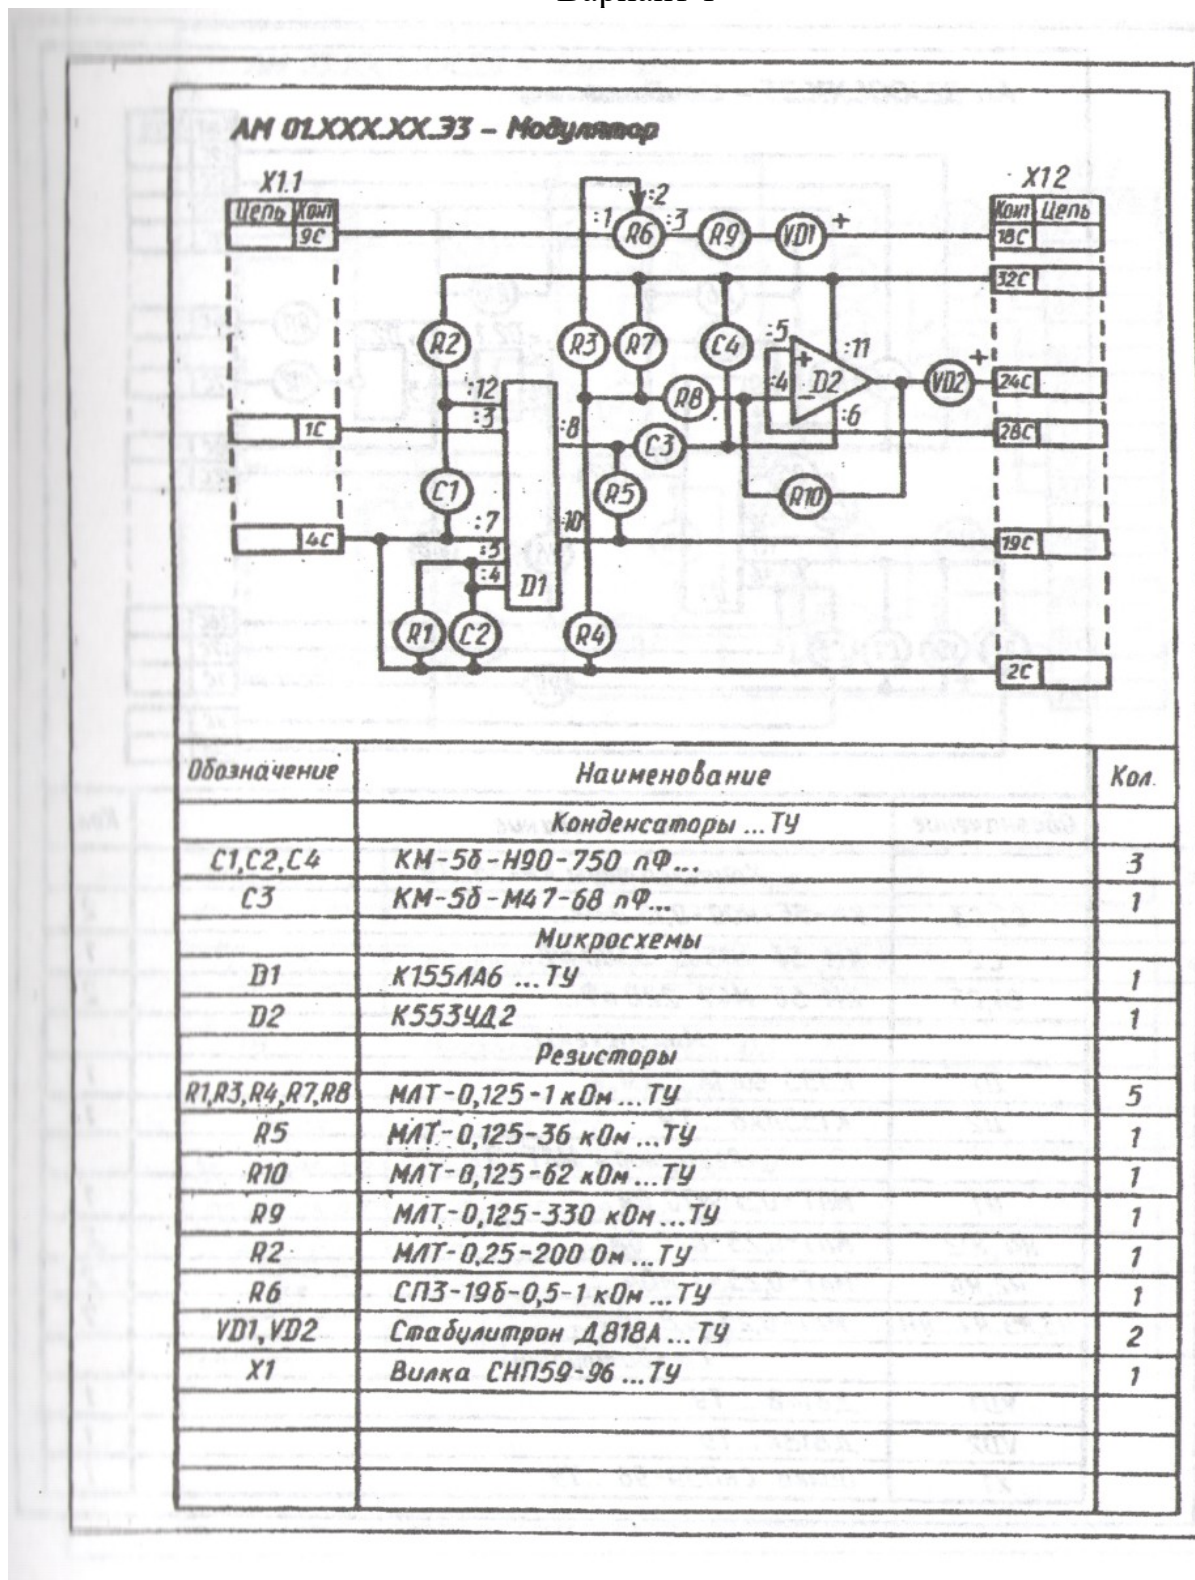 АМ 01.XXX.XX.ЭЗ – Модулятор
X1.1
X1.2
Цепь Конт
Конт Цепь
9С
:1
:2
R6
:3
R9
VD1
+
18С
32С
R2
R3
R7
C4
:5
+
:11
D2
:4
–
:6
VD2
+
24С
:12
:3
R8
1С
:8
C3
28С
C1
R5
R10
:7
:10
4С
19С
:5
:4
D1
R1
C2
R4
2С
Обозначение Наименование Кол.
Конденсаторы ...ТУ
С1,С2,С4 КМ-5б-Н90-750 пФ... 3
С3 КМ-5б-М47-68 пФ... 1
Микросхемы
D1 К155ЛА6 ...ТУ 1
D2 К553УД2 1
Резисторы
R1,R3,R4,R7,R8 МЛТ-0,125-1 кОм ...ТУ 5
R5 МЛТ-0,125-36 кОм ...ТУ 1
R10 МЛТ-0,125-62 кОм ...ТУ 1
R9 МЛТ-0,125-330 кОм ...ТУ 1
R2 МЛТ-0,25-200 Ом ...ТУ 1
R6 СП3-19б-0,5-1 кОм ...ТУ 1
VD1,VD2 Стабилитрон Д818А ...ТУ 2
X1 Вилка СНП59-96 ...ТУ 1